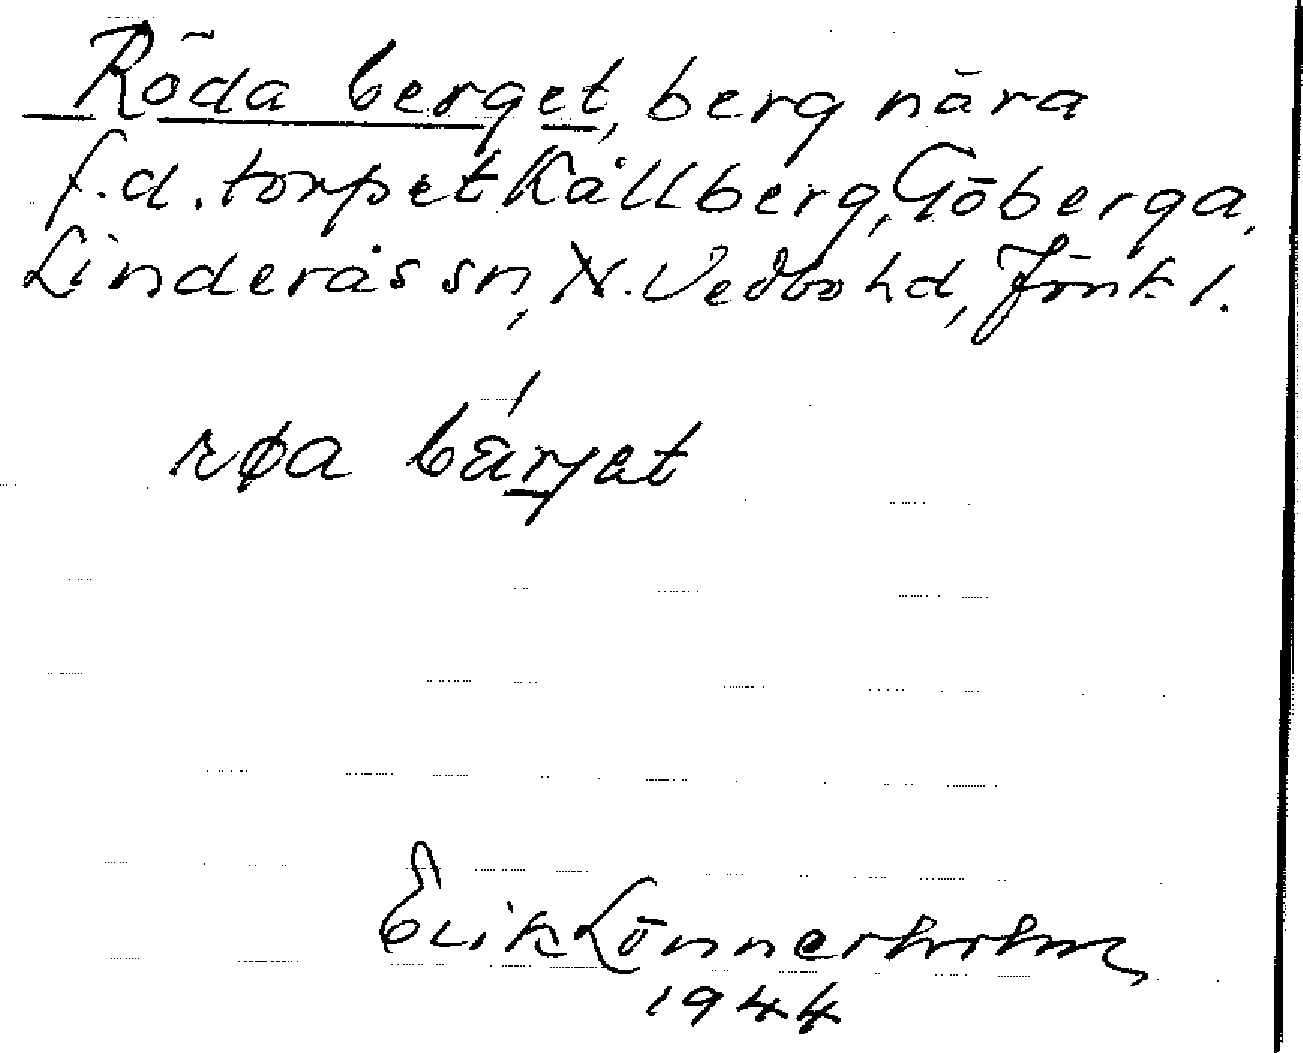 Röda berget, berg nära
f.d. torpet Kållberg, Göberga,
Linderås sn, N. Vedbo hd, Jönk l.
røa bärjat
Erik Lönnerholm
1944